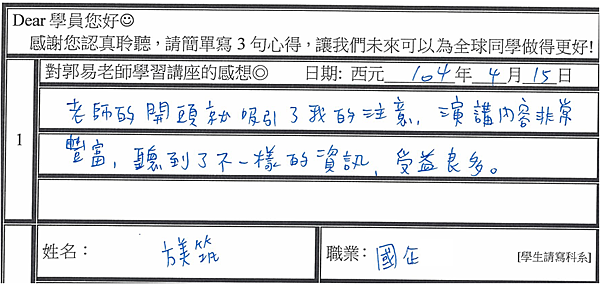 Dear 學員您好☺
感謝您認真聆聽，請簡單寫 3 句心得，讓我們未來可以為全球同學做得更好!
1
對郭易老師學習講座的感想◎ 日期: 西元 104 年 4 月 15 日
老師的開頭就吸引了我的注意，演講內容非常
豐富，聽到了不一樣的資訊，受益良多。
姓名： 方美筑 職業： 國企 [學生請寫科系]